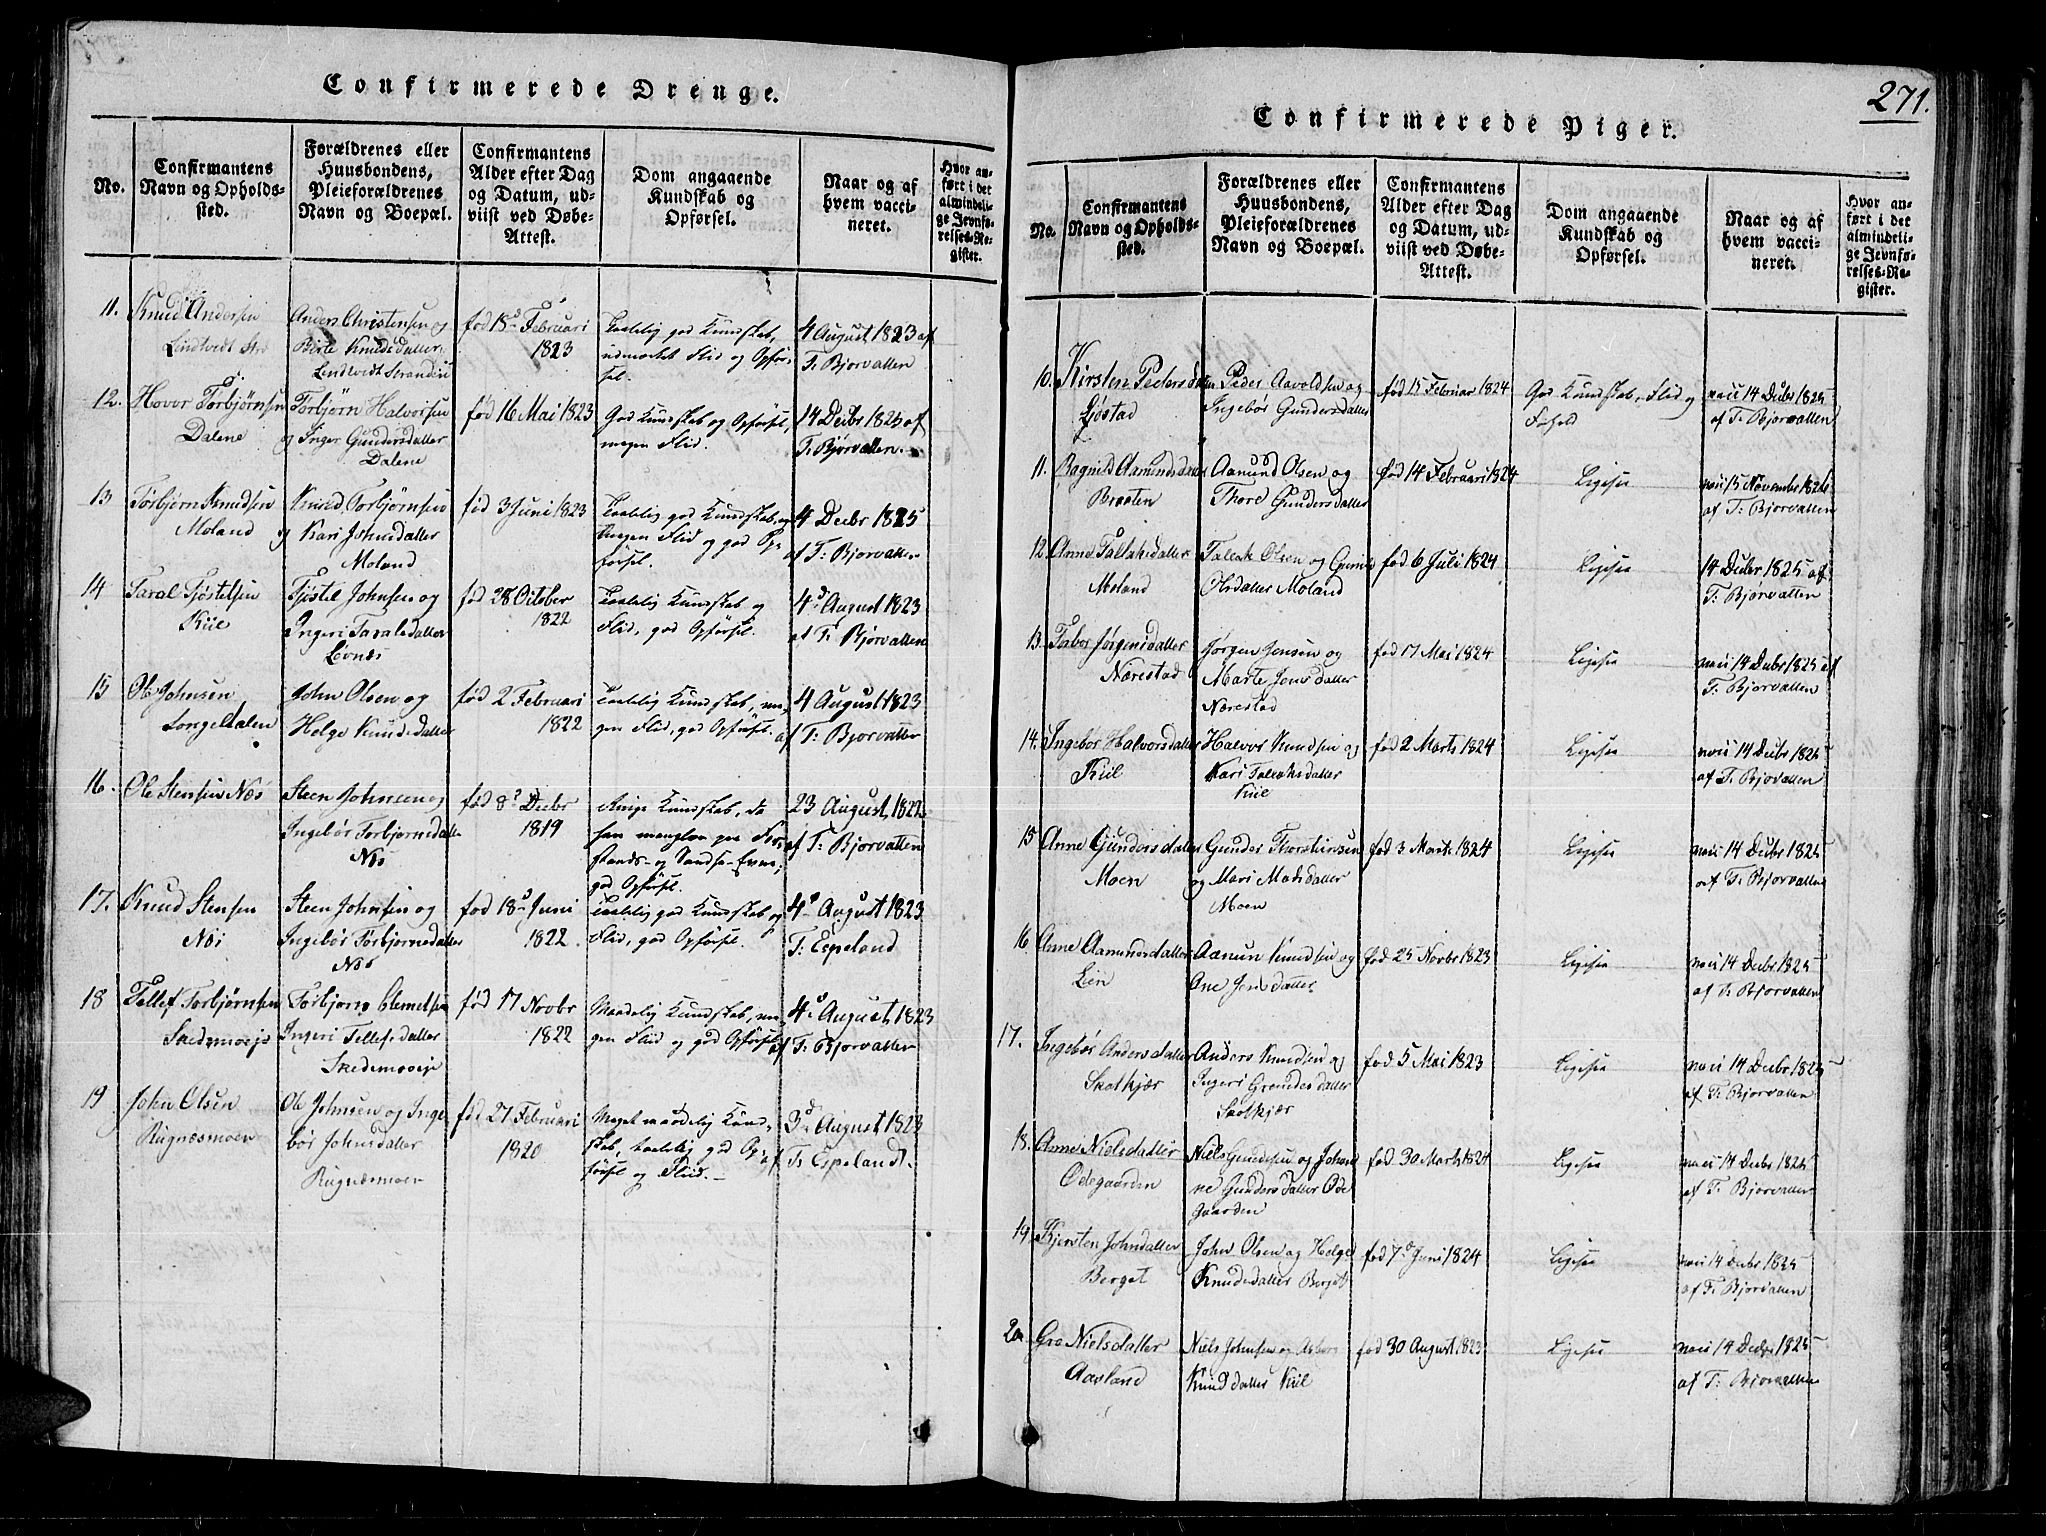 Confirmerede Drenge.
No.
Confirmantens
Navn og Opholds-
sted.
Forældrenes eller
Huusbondens,
Pleieforældrenes
Navn og Boepæl.
Confirmantens
Alder efter Dag
og Datum, ud-
viist ved Døbe-
Attest.
Dom angaaende
Kundskab og
Opførsel.
Naar og af
hvem vacci-
neret.
Hvor an-
ført i det
almindeli-
ge Jevnfø-
relses-Re-
gister.
11. Knud Andersen
Lindtvedt
Anders Christensen og
Birte Knudsdatter
Lindtvedt Stranden
fød 18d Februari
1823
Taalelig god Kundskab,
udmærket Flid og Opfør-
sel.
4 August 1823 af
T. Bjorvatten
12. Hovor Torbjørnsen
Dalene
Torbjørn Halvorsen
og Inger Gundersdatter
Dalene
fød 16 Mai 1823
God Kundskab og Opførsel,
megen Flid.
14 Decbr 1825 af
T. Bjorvatten.
13 Torbjørn Knudsen
Moland
Knud Torbjørnsen
og Kari Johnsdatter
Moland
fød 3 Juni 1823
Taalelig god Kundskab, og
megen Flid og god Op-
førsel.
4 Decbr 1825
af T: Bjorvatten
14 Taral Fjøstelsen
Kiil
Fjøstel Johnsen og
Ingeri Taralsdatter
Løvnæs
fød 28 October
1822
Taalelig Kundskab og
Flid, god Opførsel.
4d August 1823
af T: Bjorvatten
15 Ole Johnsen
Songedalen
John Olsen og
Helge Knudsdatter
fød 2 Februari
1822
Taalelig Kundskab, me-
gen Flid, god Opførsel.
4 August 1823
af T: Bjorvatten
16. Ole Stensen Næs
Steen Johnsen og
Ingebør Torbjørnsdatter
Næs
fød 8d Decbr
1819
Ringe Kundskab, da
ham mangler paa For-
stands- og Sandse-Evner;
god Opførsel.
23 August 1822
af T: Bjorvatten
17. Knud Stensen
Næs
Steen Johnsen og
Ingebør Torbjørnsdatter
Næs
fød 18d Juni
1822.
Taalelig god Kundskab og
Flid, god Opførsel.
4d August 1823
T: Espeland
18 Tellef Torbjørnsen
Skedsmoeje
Torbjørn Clemetsen
Ingeri Tellefsdatter
Skedsmoeje
fød 17 Novbr
1822
Maadelig Kundskab, me-
gen Fliid og god Opførsel
4d August 1823
af T: Bjorvatten
19 John Olsen
Rugnæsmoen
Ole Johnsen og Inge
bør Johnsdatter
Rugnæsmoen
fød 27 Februari
1820
Meget maadelig Kund-
skab, taalelig god Op-
førsel og Fliid.
3d August 1823
af T. Espeland.
271.
Confirmerede Piger.
No.
Confirmantens
Navn og Opholds-
sted.
Forældrenes eller
Huusbondens,
Pleieforældrenes
Navn og Boepæl.
Confirmantens
Alder efter Dag
og Datum, ud-
viist ved Døbe-
Attest.
Dom angaaende
Kundskab og
Opførsel.
Naar og af
hvem vacci-
neret.
Hvor an-
ført i det
almindeli-
ge Jevnfø-
relses-Re-
gister.
10. Kirsten Pedersdatter
Ljøstad
Peder Aavoldsen og
Ingebør Gundersdatter
fød 15 Februar 1824
God Kundskab, Flid og
Forhold
14 Decbr 1825
af T. Bjorvatten
11. Ragnild Aamundsdatter
Braaten
Aanund Olsen og
Thore Gundersdatter
fød 14 Februari 1824
Ligesaa
15 November 1826
af T: Bjorvatten
12. Anne Talaksdatter
Moland
Taleak Olsen og Guni
Olsdatter Moland
fød 6 Juli 1824
Ligesaa
14 Decbr 1825 af
T. Bjørvatten
13. Tabor Jørgensdatter
Nærestad
Jørgen Jensen og
Marte Jensdatter
Nærestad
fød 17 Mai 1824
Ligesaa
14 Decbr 1825 af
T. Bjorvatten
14. Ingebør Halvorsdatter
Kiil
Halvor Knudsen og
Kari Taleaksdatter
Kiil
fød 2 Marts 1824
Ligesaa
14 Decbr 1825
af T. Bjorvatten
15 Anne Gundersdatter
Moen
Gunder Thorstensen
og Mari Madsdatter
Moen
fød 3 Marts 1824
Ligesaa
14 Decbr 1825
af T. Bjorvatten
16. Anne Aamundsdatter
Lien
Aanun Knudsen og
Ane Jensdatter
fød 25 Novbr 1823
Ligesaa
14 Decbr 1825
af T. Bjorvatten
17. Ingebør Andersdatter
Skotkjær
Anders Knudsen og
Ingeri Grundesdatter
Skotkjær
fød 5 Mai 1823
Ligesaa
14 Decbr 1825
af T. Bjorvatten
18. Anne Nielsdatter
Ødegaarden
Niels Gundersen og Johan
ne Gundersdatter Øde
gaarden
fød 30 Marts 1824
Ligesaa
14 Decbr 1825
af T. Bjorvatten
19. Kjersten Johnsdatter
Berget
John Olsen og Helge
Knudsdatter Berget
fød 7d Juni 1824
Ligesaa
14 Decbr 1825
af T. Bjorvatten
20. Gro Nielsdatter
Aasland
Niels Johnsen og Asbør
Knudsdatter Kiil
fød 30 August 1823
Ligesaa
14 Decbr 1825
af T: Bjorvatten